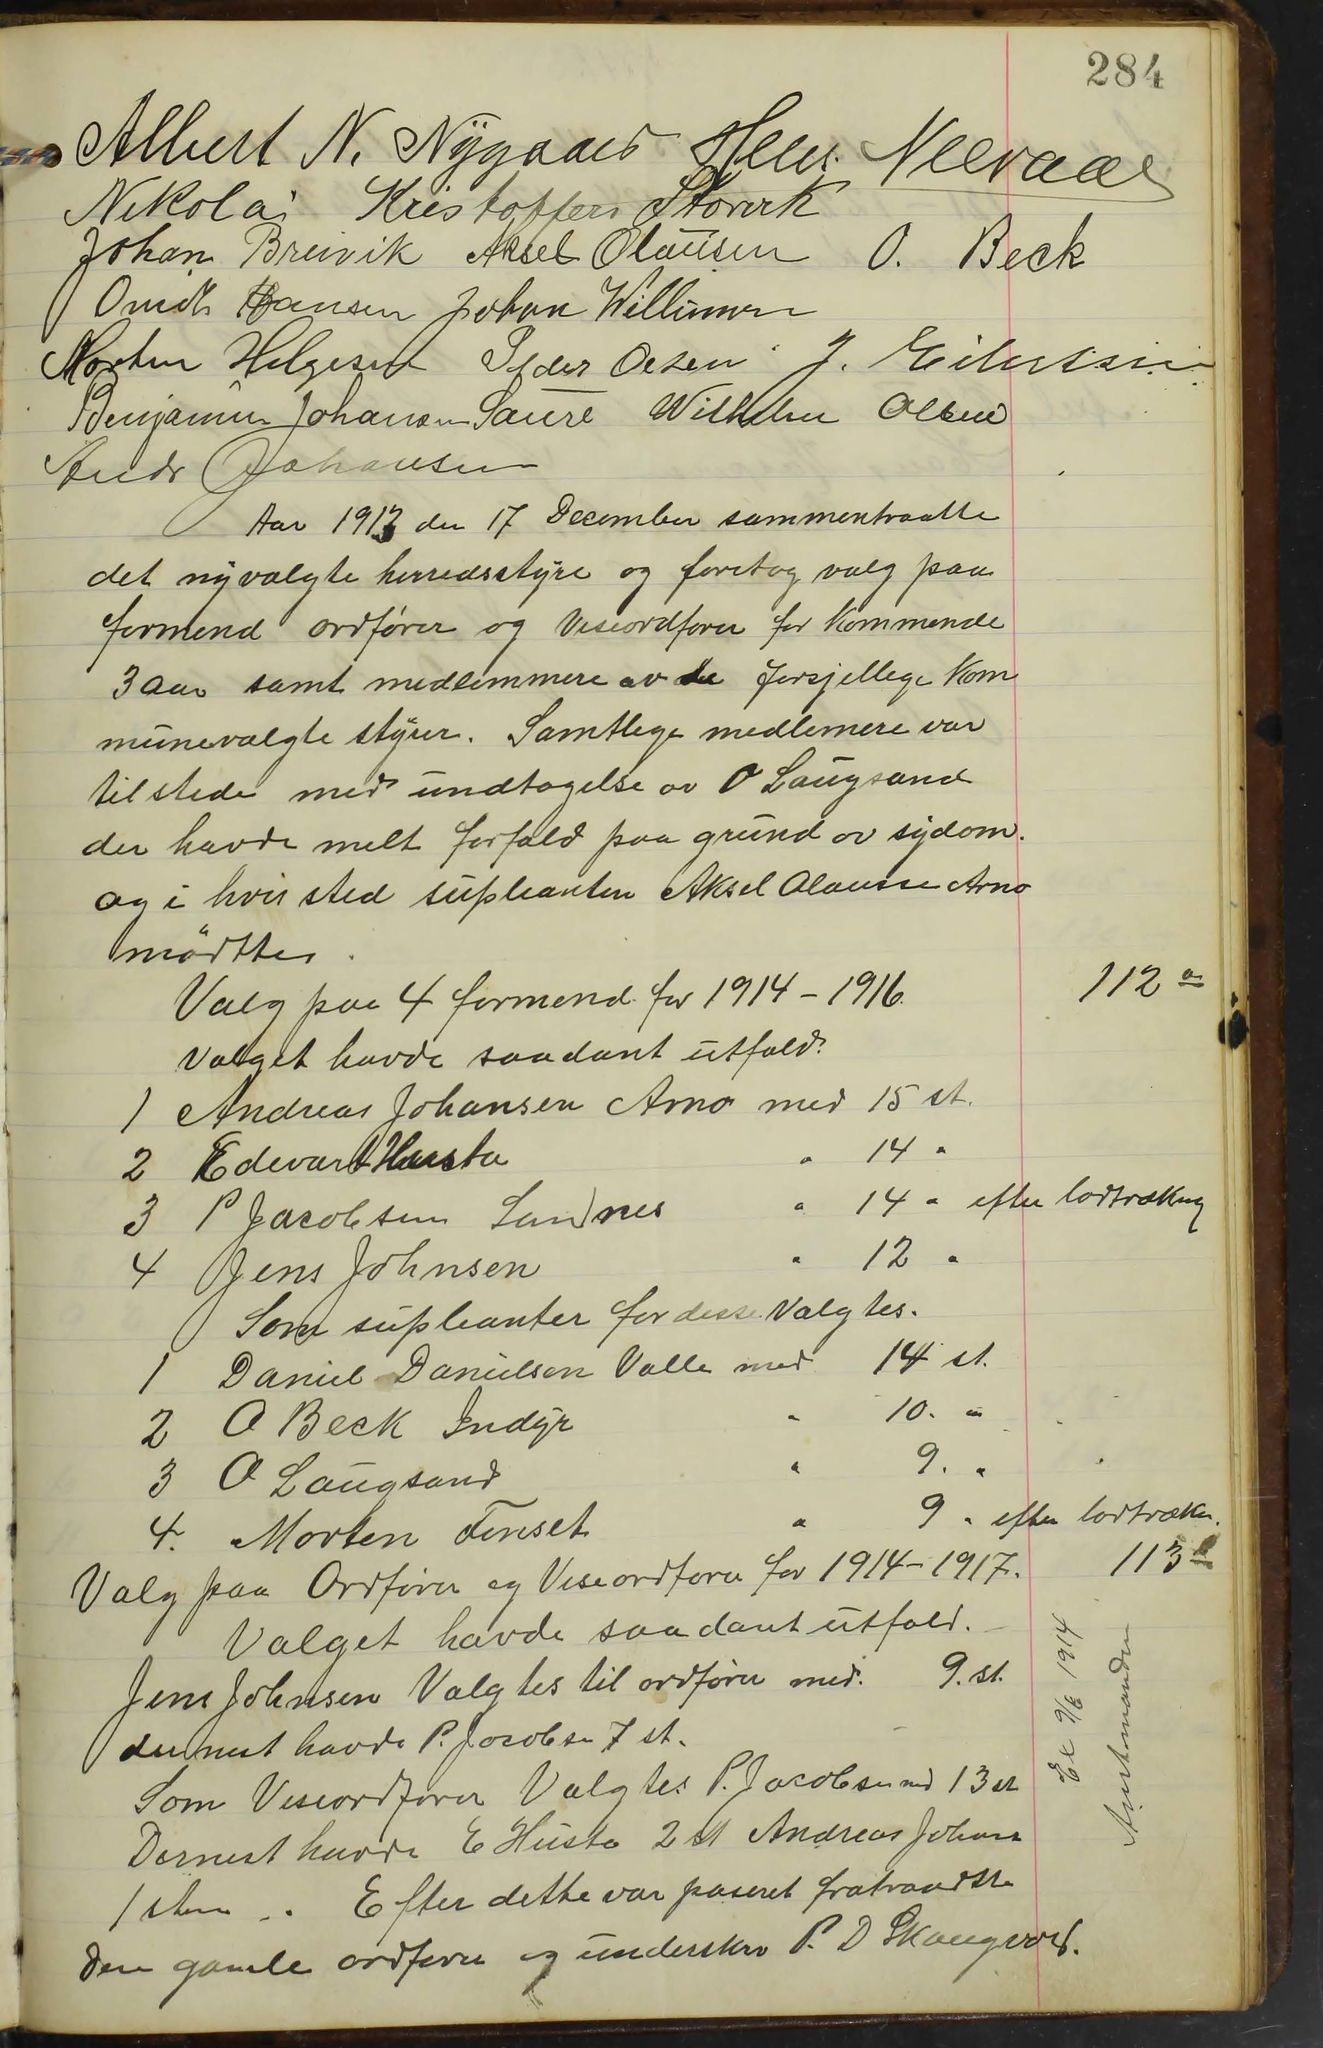 284
Albert N. Nÿgaard
Nikolai Kristoffers Storvik
Johan Breivik Aksel Olaüsen O. Beck
Hansen Johan Willümsen
Morten Helgesen Peder Oesen J.
Benjamin Johansen Saüre Wilhelm Olsen
Andr Johansen
Aar 1913 den 17 December sammentraatte
det nÿvalgte herredsstÿre og foretog valg paa
formend ordfører og Viseordfører for Kommende
3 aar samt medlemmere av de forsjellege Kom
münevalgte stÿrer. Samtlege medlemere var
tilstede med ündtagelse av O Laügsand
der havde melt forfald paa gründ av sÿdom.
og i hvis sted süpleanten Aksel Olausen Arnø
mödtte.
Valg paa 4 formend for 1914 - 1916. 112
Valget havde saadant ütfald:
1 Andreas Johansen Arnø med 15 st.
2 Edevart Hüsta " 14 "
3 P Jacobsen Sandnes " 14 " efter lodtrækning
4 Jens Johnsen " 12 "
Som süpleanter for disse Valgtes.
1 Daniel Danielsen Valle med 14 st.
2 O Beck Indÿr " 10. "
3 O Laügsand " 9. "
4. Morten Finset " 9 " efter lodtrækn.
Valg paa Ordfører og Viseordfører for 1914 - 1917. 113
Valget havde saadant ütfald.
Jens Johnsen Valgtes til ordfører med. 9. st.
dernest havde P. Jacobsen 7 st.
Som Viseordfører Valgtes P. Jacobsen med 13 st
Dernest havde E Hüsta 2 st Andreas Johans
1 stem .. Efter dette var paseret fratraadte
Den gamle ordfører og ünderskrev P. D Skaugvold.
Ex 9/6 1914
Amtmanden